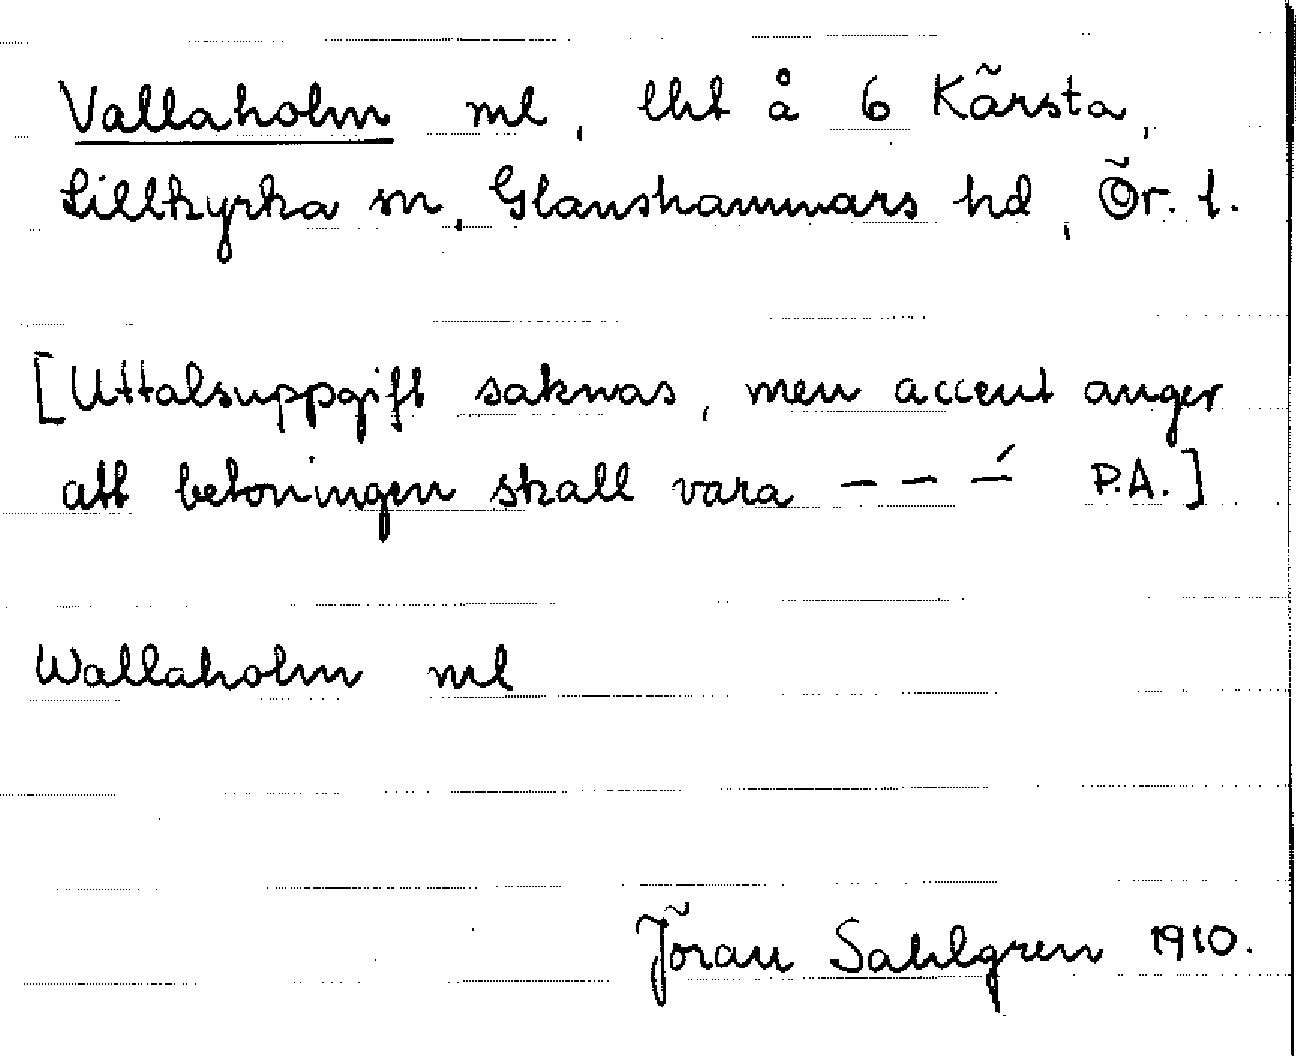 Vallaholm ml, lht å 6 Kärsta,
Lillkyrka sn, Glanshammars hd, Ör. l.
[Uttalsuppgift saknas, men accent anger
att betoningen skall vara – – –́ P.A.]
Wallaholm ml
Jöran Sahlgren 1910.